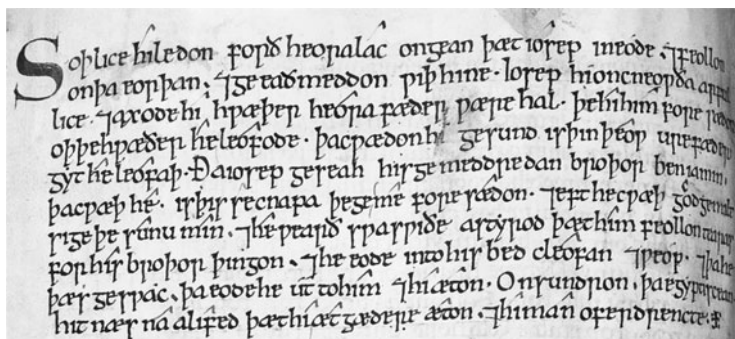 Soþlice hi ledon forð heora lac ongean þæt iosep ineode . ⁊ feollon
on þa eorþan ; ⁊ geeadmeddon ƿiþ hine . Iosep hi oncneoƿ þa
lice . ⁊ axode hi hƿæþer heora fæder ƿære hal . þe hi hī fore sædon
oþþe hƿæðer he leofode . þa cƿædon hi gesund is þin þeoƿ ure fæder
gyt he leofaþ . Ða iosep geseah his gemeddredan broþor beniamin,
þa cƿæþ he . is þis se cnapa þe ge me fore sædon . ⁊ eft he cƿæþ god gemilt
sige þe sunu min . ⁊ he ƿearð sƿa sƿiðe astyrod þæt him feollon
for his broþor þingon , ⁊ he eode into his bed cleofan ⁊ ƿeop . ⁊ þa he
þæs gesƿac , þa eode he ut to him ⁊ hi æton . On sundrion . þa egyptiscean
hit næs na alifed þæt hi æt gædere æton . ⁊ hi man oferdrencte .